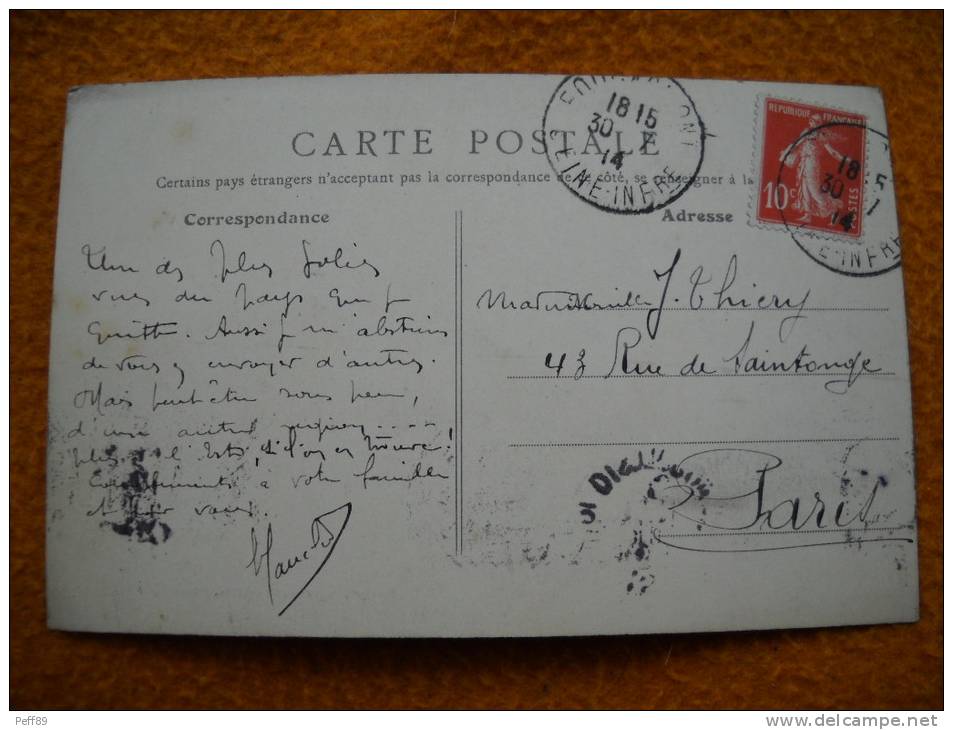 CARTE POSTALE
Certains pays étrangers n'acceptent pas la correspondance de ce côté, se renseigner à la
Correspondance
Une des plus jolies
vues du pays que je
quitte. Aussi je m'abstiens
de vous y envoyer d'autres.
Mais peut-être sous peu,
d'une autre
plus à l'Est, si l'on en trouve!
Compliments à votre famille
et pour vous.
Adresse
Mademoiselle J. Thiery
43 Rue de Saintonge
Paris
18 15
30 7
14
SEINE-INFRE
REPUBLIQUE FRANÇAISE
10 c
POSTES
18 15
30
14
E-INFRE
Peff89
www.delcampe.net